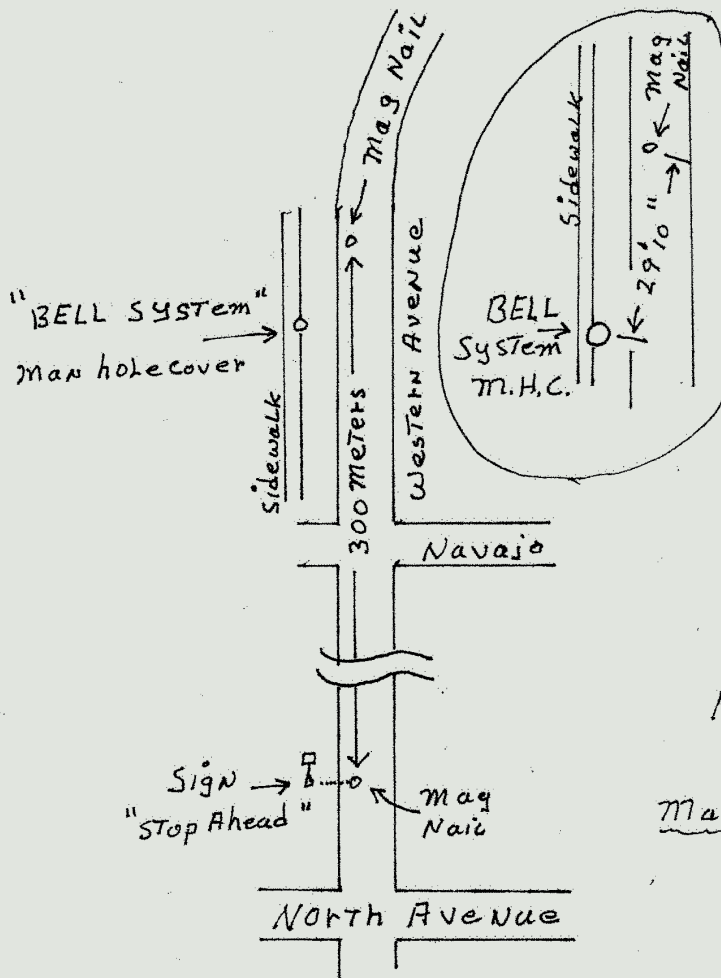 Mag Nail
"BELL SYSTem"
Man hole cover
Sidewalk
300 meters
Western Avenue
Navajo
Sign
"Stop Ahead"
Mag
Nail
North Avenue
Sidewalk
Mag
Nail
29'10"
BELL
System
M.H.C.
Ma